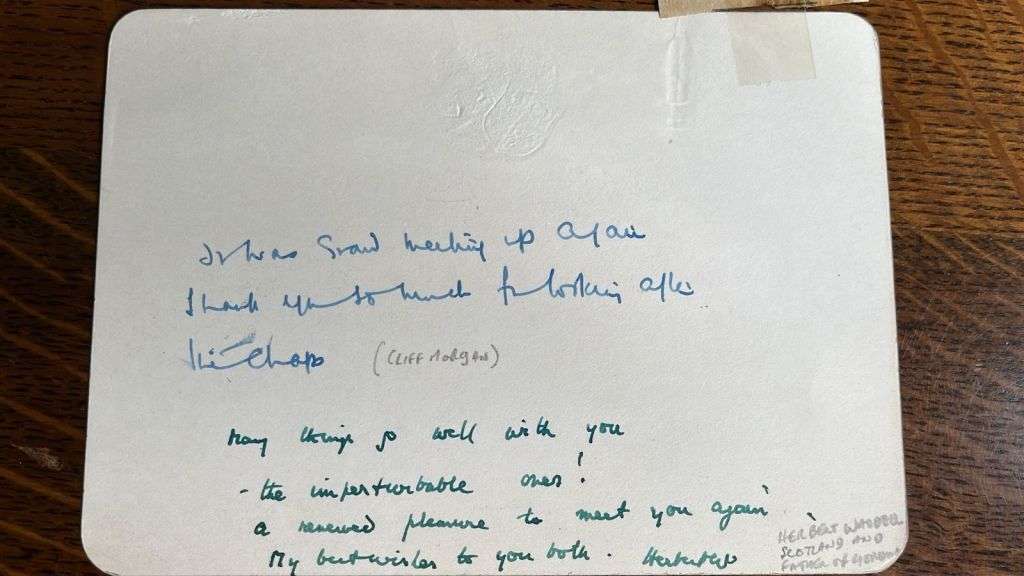 It was Grand meeting up again
Thank you so much for looking after
the Chaps (CLIFF MORGAN)
May things go well with you
- the imperturbable ones!
a renewed pleasure to meet you again
My best wishes to you both. Herbert
HERBERT WADDELL
SCOTLAND AND
FATHER OF GORDON